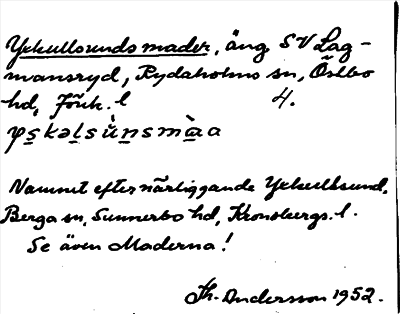 Yxkullsunds mader, äng SV Lag-
mansryd, Rydaholms sn, Östbo
hd, Jönk. l 4.
Namnet efter närliggande Yxkullsund,
Berga sn, Sunnerbo hd, Kronobergs. l.
Se även Maderna!
Th. Andersson 1952.